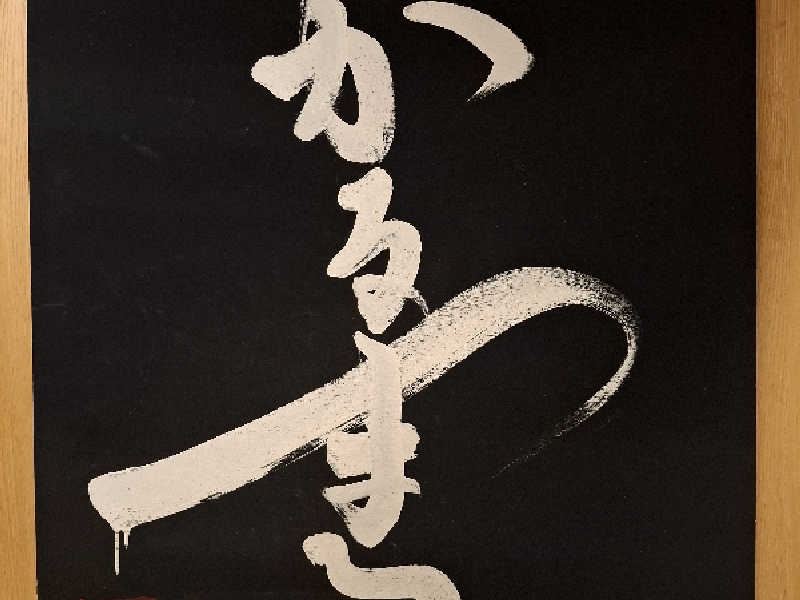 かるま